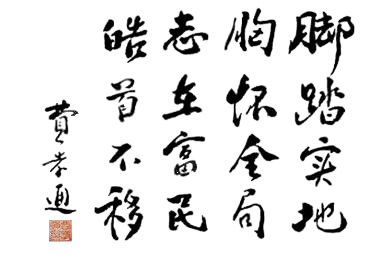 脚踏实地
胸怀全局
志在富民
皓首不移
費孝通